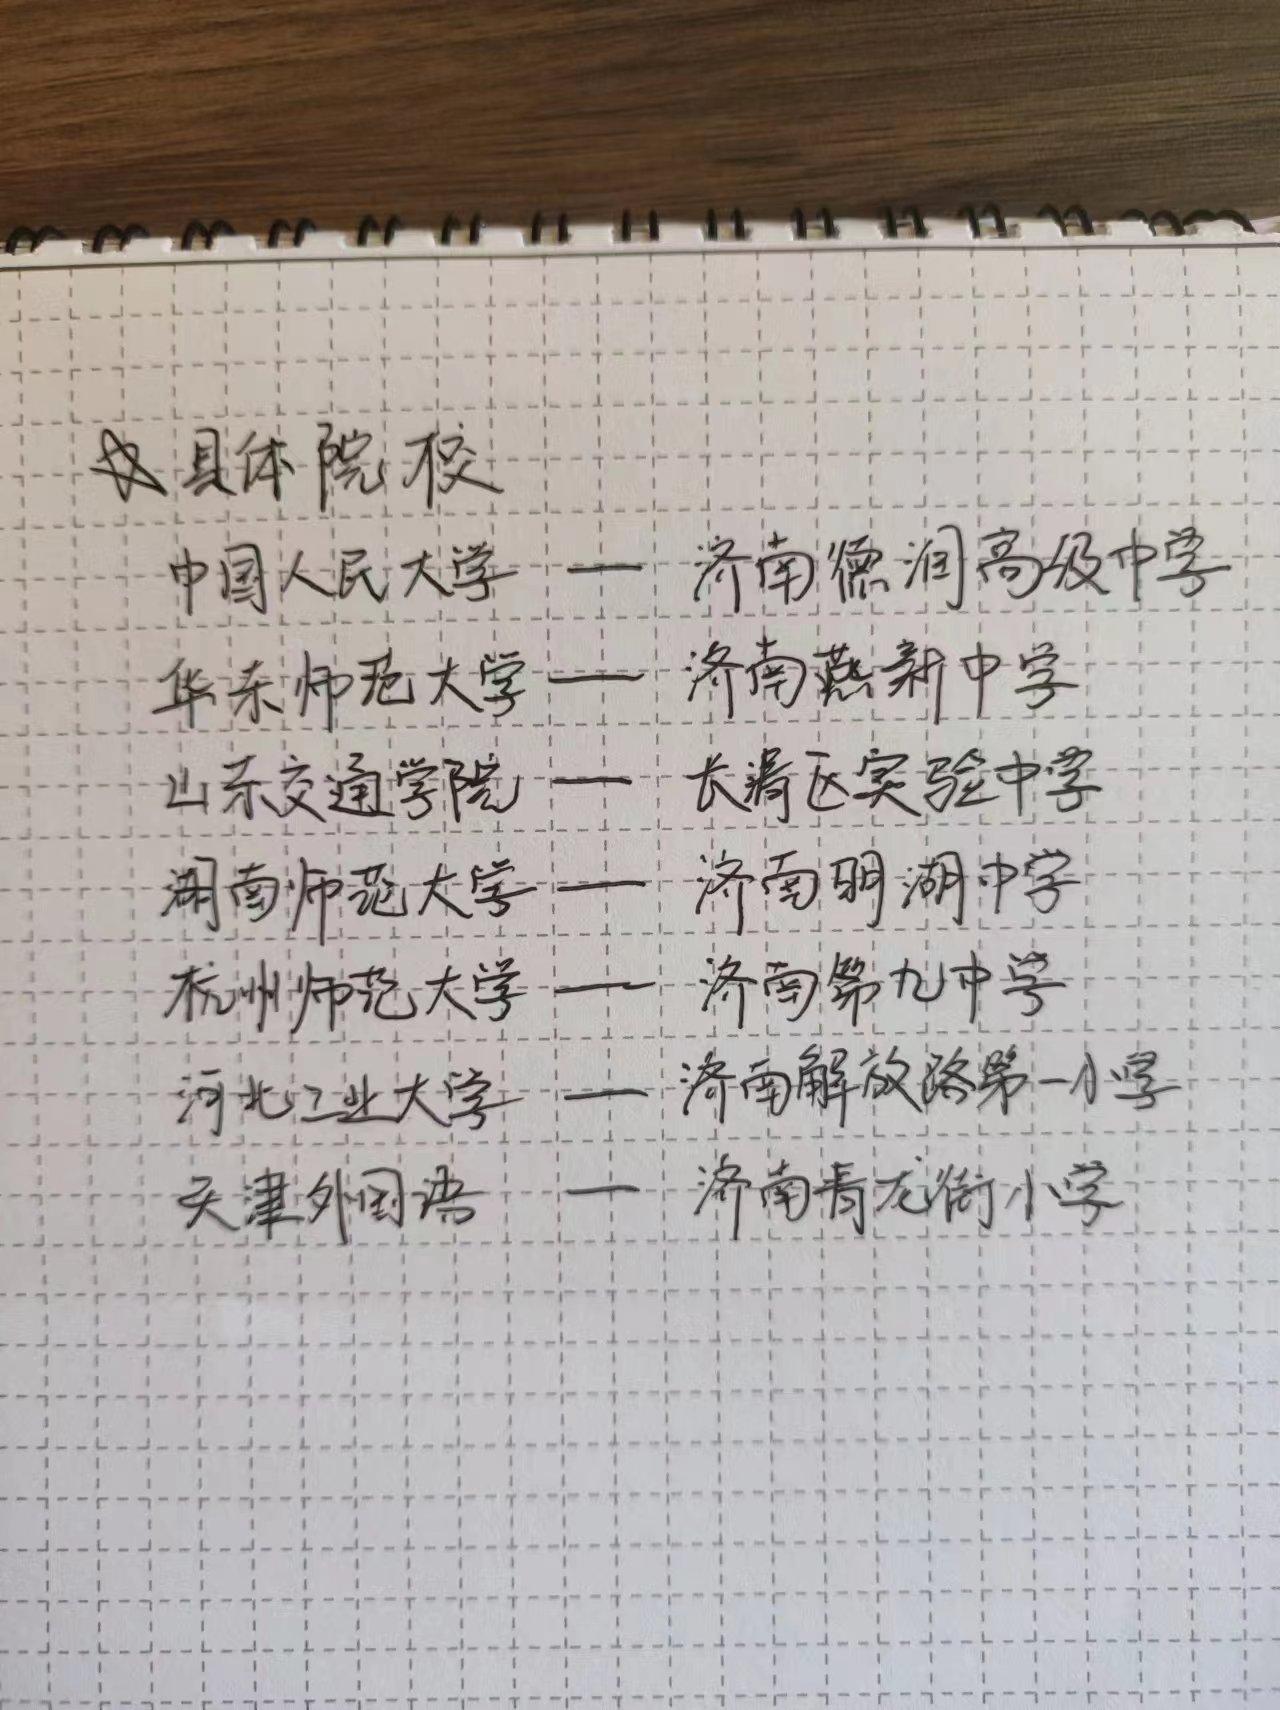 ☆具体院校
中国人民大学 — 济南德润高级中学
华东师范大学 — 济南燕新中学
山东交通学院 — 长清区实验中学
湖南师范大学 — 济南明湖中学
杭州师范大学 — 济南第九中学
河北工业大学 — 济南解放路第一小学
天津外国语 — 济南青龙街小学